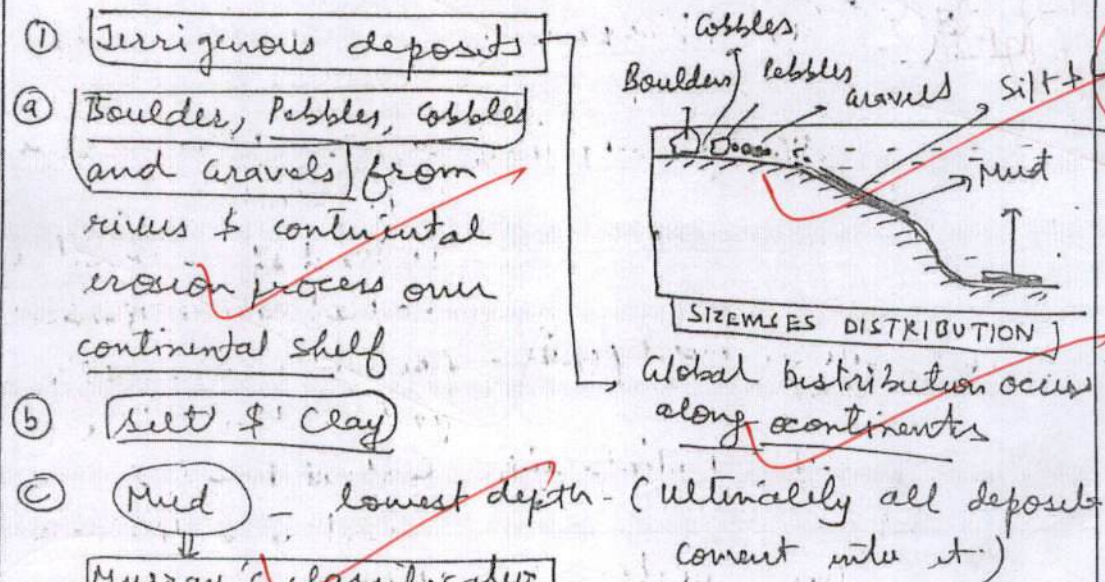 ① Terrigenous deposits
ⓐ Boulder, Pebbles, cobbles
and Gravels from
rivers & continental
erosion process over
continental shelf
ⓑ Silt & Clay
ⓒ Mud - lowest depth - (ultimately all deposit
convert into it)
Murray's classification
Cobbles
Boulders Pebbles Gravels Silt +
Mud
SIZEWISES DISTRIBUTION
Global Distribution occurs
along continents